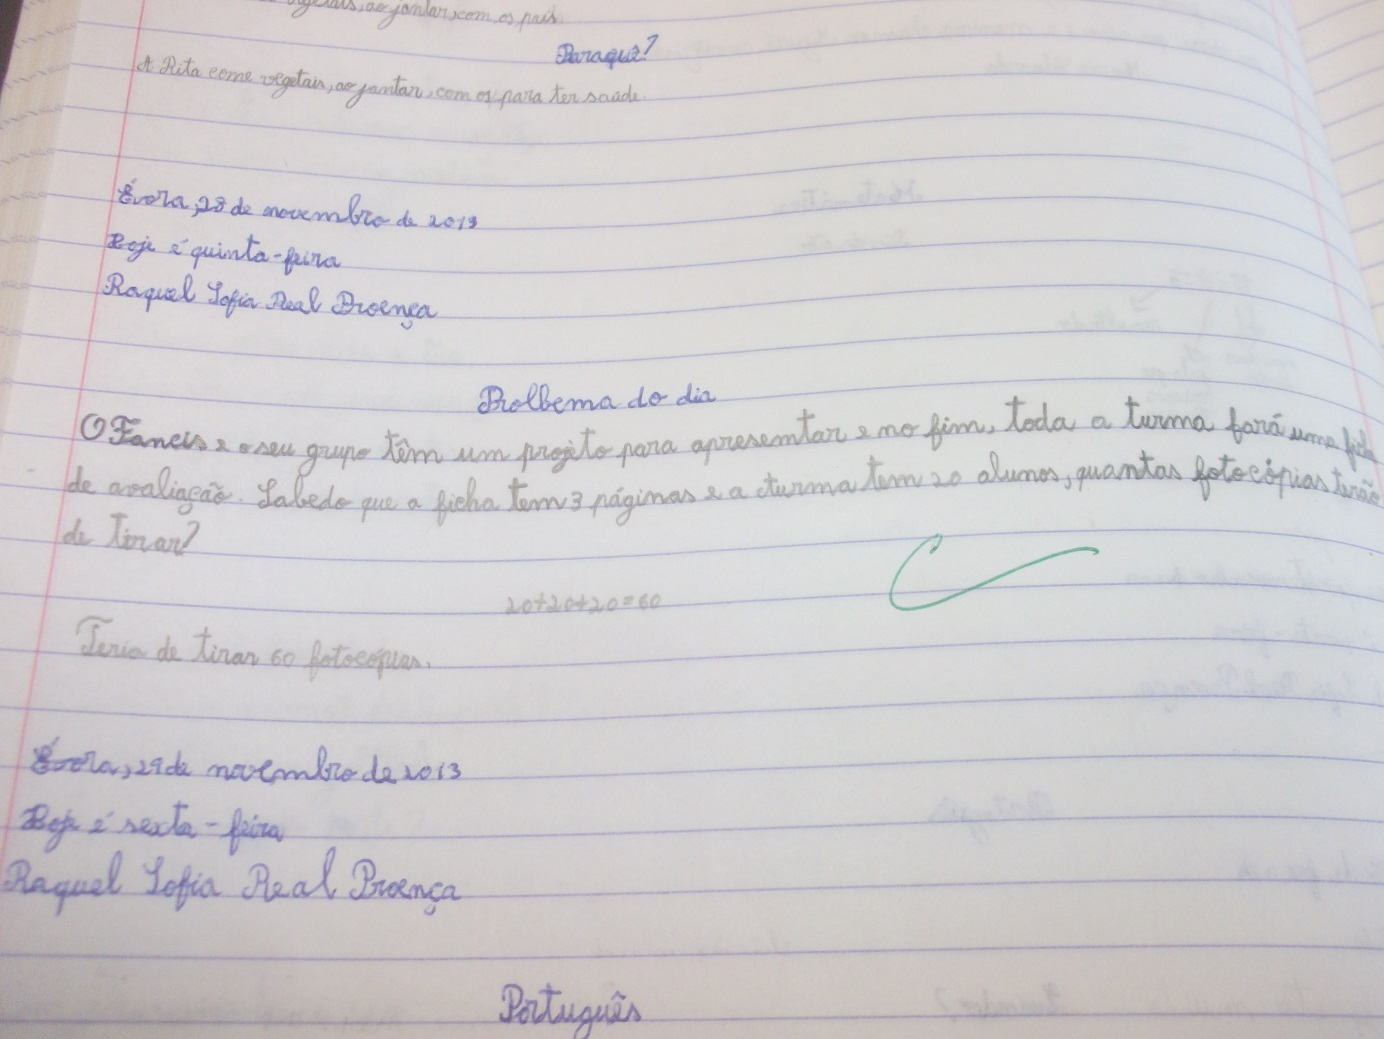 vegetais, ao jantar, com os pais.
Para quê?
A Rita come vegetais, ao jantar, com os para ter saúde.
Évora, 28 de novembro de 2013
Hoje é quinta-feira
Raquel Sofia Real Proença
Prolbema do dia
O Fancis e o seu grupo têm um projeto para apresemtar e no fim, toda a turma fará uma ficha
de avaliação. Sabedo que a ficha tem 3 páginas e a turma tem 20 alunos, quantas fotocópias terão
de tirar?
20+20+20=60
Teria de tirar 60 fotocópias.
Évora, 29 de novembro de 2013
Hoje é sexta-feira
Raquel Sofia Real Proença
Português